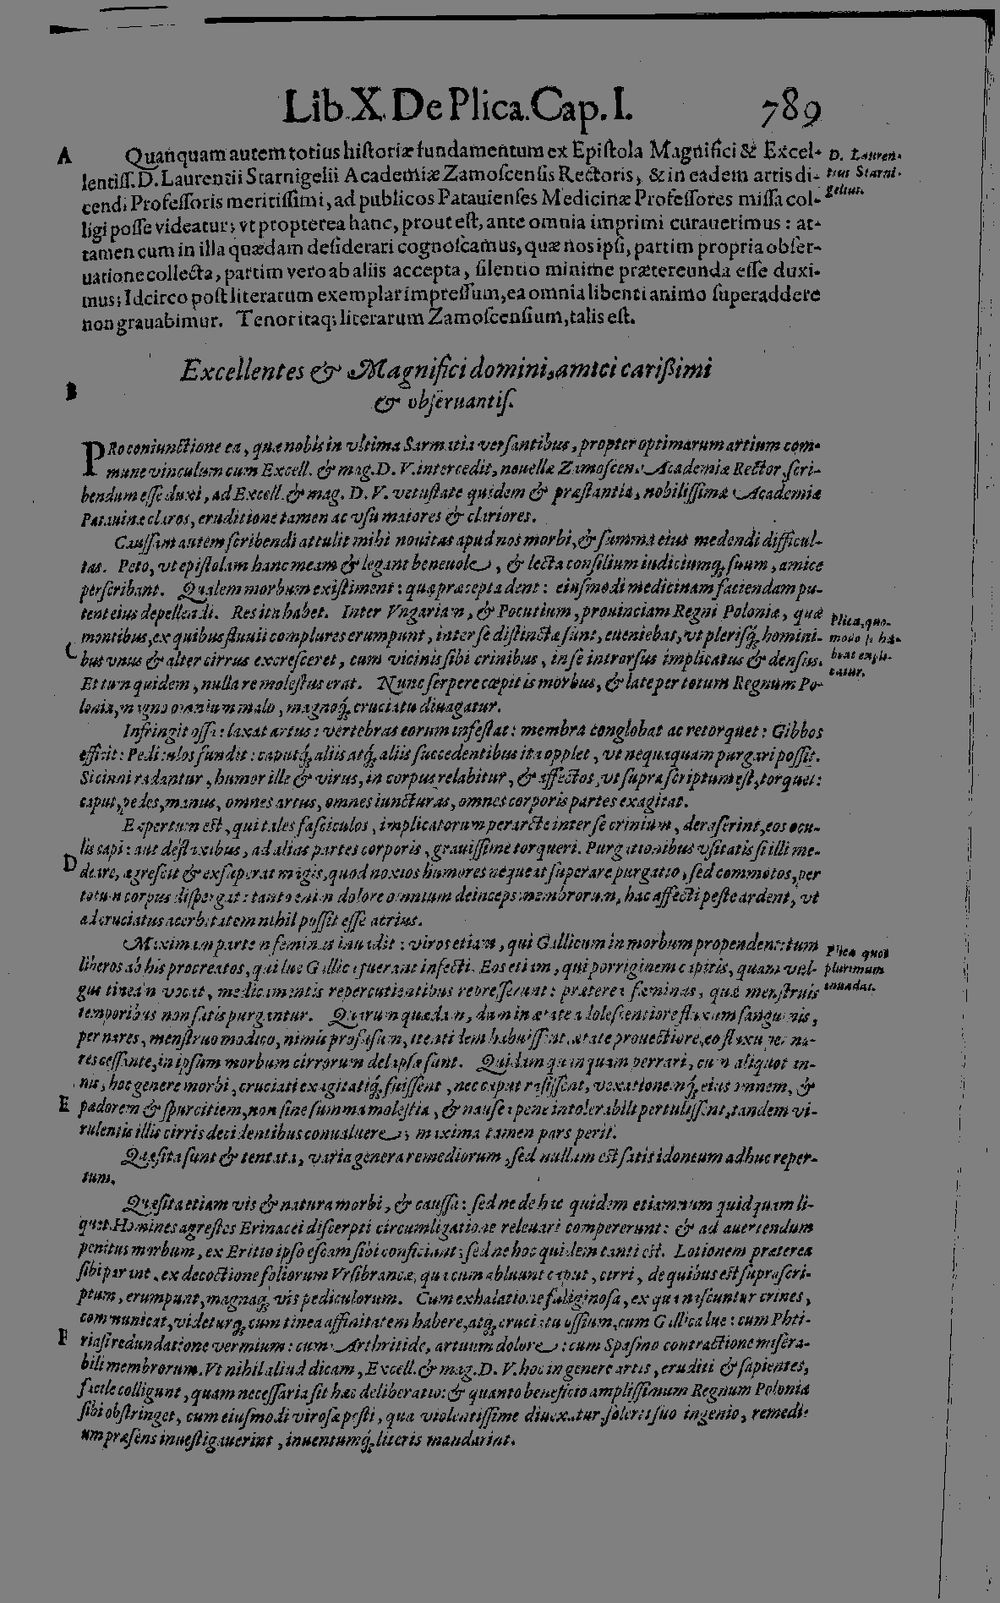 Lib. X. De Plica. Cap. I. 789
A Quanquam autem totius historiæ fundamentum ex Epistola Magnifici & Excel-
lentiss. D. Laurentii Starnigelii Academiæ Zamoscensis Rectoris, & in eadem artis di-
cendi Professoris meritissimi, ad publicos Patauienses Medicinæ Professores missa col-
ligi posse videatur; vt propterea hanc, prout est, ante omnia imprimi curauerimus: at-
tamen cum in illa quædam desiderari cognoscamus, quæ nos ipsi, partim propria obser-
uatione collecta, partim vero ab aliis accepta, silentio minime prætereunda esse duxi-
mus; Idcirco post literarum exemplar impressum, ea omnia libenti animo superaddere
non grauabimur. Tenor itaq; literarum Zamoscensium, talis est.
D. Lauren-
tius Starni-
gelius.
Excellentes & Magnifici domini, amici carißimi
B
& obseruantiß.
PRo coniunctione ea, quæ nobis in vltima Sarmatia versantibus, propter optimarum artium com-
mune vinculum cum Excell. & mag. D. V. intercedit, nouellæ Zamoscens. Academiæ Rector, scri-
bendum esse duxi, ad Excell. & mag. D. V. vetustate quidem & præstantia, nobilissimæ Academiæ
Patauinæ claros, eruditione tamen ac vsu maiores & clariores.
Caussam autem scribendi attulit mihi nouitas apud nos morbi, & summa eius medendi difficul-
tas. Peto, vt epistolam hanc meam & legant beneuole, & lecta consilium iudiciumq; suum, amice
perscribant. Qualem morbum existiment: quæ præcepta dent: eiusmodi medicinam faciendam pu-
tent eius depellendi. Res ita habet. Inter Vngariam, & Pocutium, prouinciam Regni Poloniæ, quæ
montibus, ex quibus fluuii complures erumpunt, inter se distinctæ sunt, eueniebat, vt plerisq; homini-
C bus vnus & alter cirrus excresceret, cum vicinis sibi crinibus, in se introrsus implicatus & densus.
Et tum quidem, nulla re molestus erat. Nunc serpere cœpit is morbus, & late per totum Regnum Po-
loniæ, magno omnium malo, magnoq; cruciatu diuagatur.
Plica, quo-
modo se ha-
beat expli-
catur.
Infringit ossa: laxat artus: vertebras eorum infestat: membra conglobat ac retorquet: Gibbos
efficit: Pediculos fundit: caputq; aliis atq; aliis succedentibus ita opplet, vt nequaquam purgari possit.
Si cinni radantur, humor ille & virus, in corpus relabitur, & affectos, vt supra scriptum est, torquet:
caput, pedes, manus, omnes artus, omnes iuncturas, omnes corporis partes exagitat.
Expertum est, qui tales fasciculos, implicatorum perarcte inter se crinium, deraserint, eos ocu-
lis capi: aut destillationibus, ad alias partes corporis, grauissime torqueri. Purgationibus vsitatis si illi me-
D deare, ægrescit & exasperat magis, quod noxios humores nequeat superare purgatio, sed commotos, per
totum corpus dispergat: tanto enim dolore omnium deinceps membrorum, hac affecti peste ardent, vt
ad cruciatus acerbitatem nihil possit esse acrius.
Maximam partem feminas inuadit: viros etiam, qui Gallicum in morbum propendent: tum
liberos ab his procreatos, qui lue Gallica fuerant infecti. Eos etiam, qui porriginem capitis, quam vul-
gus tineam vocat, medicamentis repercutientibus represserunt: præterea fæminas, quæ menstruis
temporibus non satis purgantur. Quarum quædam, dum in ætate adolescentiore fluxum sanguinis,
per nares, menstruo modico, nimis profusum, itentidem habuissent, ætate prouectiore, eo fluxu per na-
res cessante, in ipsum morbum cirrorum delapsæ sunt. Quidam quanquam perrari, cum aliquot an-
nis, hoc genere morbi, cruciati exagitatiq; fuissent, nec caput rasissent, vexationemq; eius omnem, &
E pædorem & spurcitiem, non sine summa molestia, & nausea pene intolerabili pertulissent, tandem vi-
rulentis illis cirris decidentibus conualuere; maxima tamen pars perit.
Plica quos
plurimum
inuadat.
Quæsita sunt & tentata, varia genera remediorum, sed nullum est satis idoneum adhuc reper-
tum.
Quæsita etiam vis & natura morbi, & caussa: sed ne de hac quidem etiamnum quidquam li-
quet. Homines agrestes Erinacei discerpti circumligatione releuari compererunt: & ad auertendum
penitus morbum, ex Ericio ipso escam sibi conficiunt; sed ne hoc quidem tanti est. Lotionem præterea
sibi parant, ex decoctione foliorum Vrsibrancæ, qua cum abluunt caput, cirri, de quibus est suprascri-
ptum, erumpunt, magnaq; vis pediculorum. Cum exhalatione fuliginosa, ex qua nascuntur crines,
communicat, videturq; cum tinea affinitatem habere, atq; cruciatu ossium, cum Gallica lue: cum Phti-
F riasi redundatione vermium: cum Arthritide, artuum dolore: cum Spasmo contractione misera-
bili membrorum. Vt nihil aliud dicam, Excell. & mag. D. V. hoc in genere artis, eruditi & sapientes,
facile colligunt, quam necessaria sit hæc deliberatio: & quanto beneficio amplissimum Regnum Poloniæ
sibi obstringet, cum eiusmodi virosa pesti, qua violentissime diuexatur, soleresi suo ingenio, remedi-
um præsens inuestigauerint, inuentumq; literis mandarint.